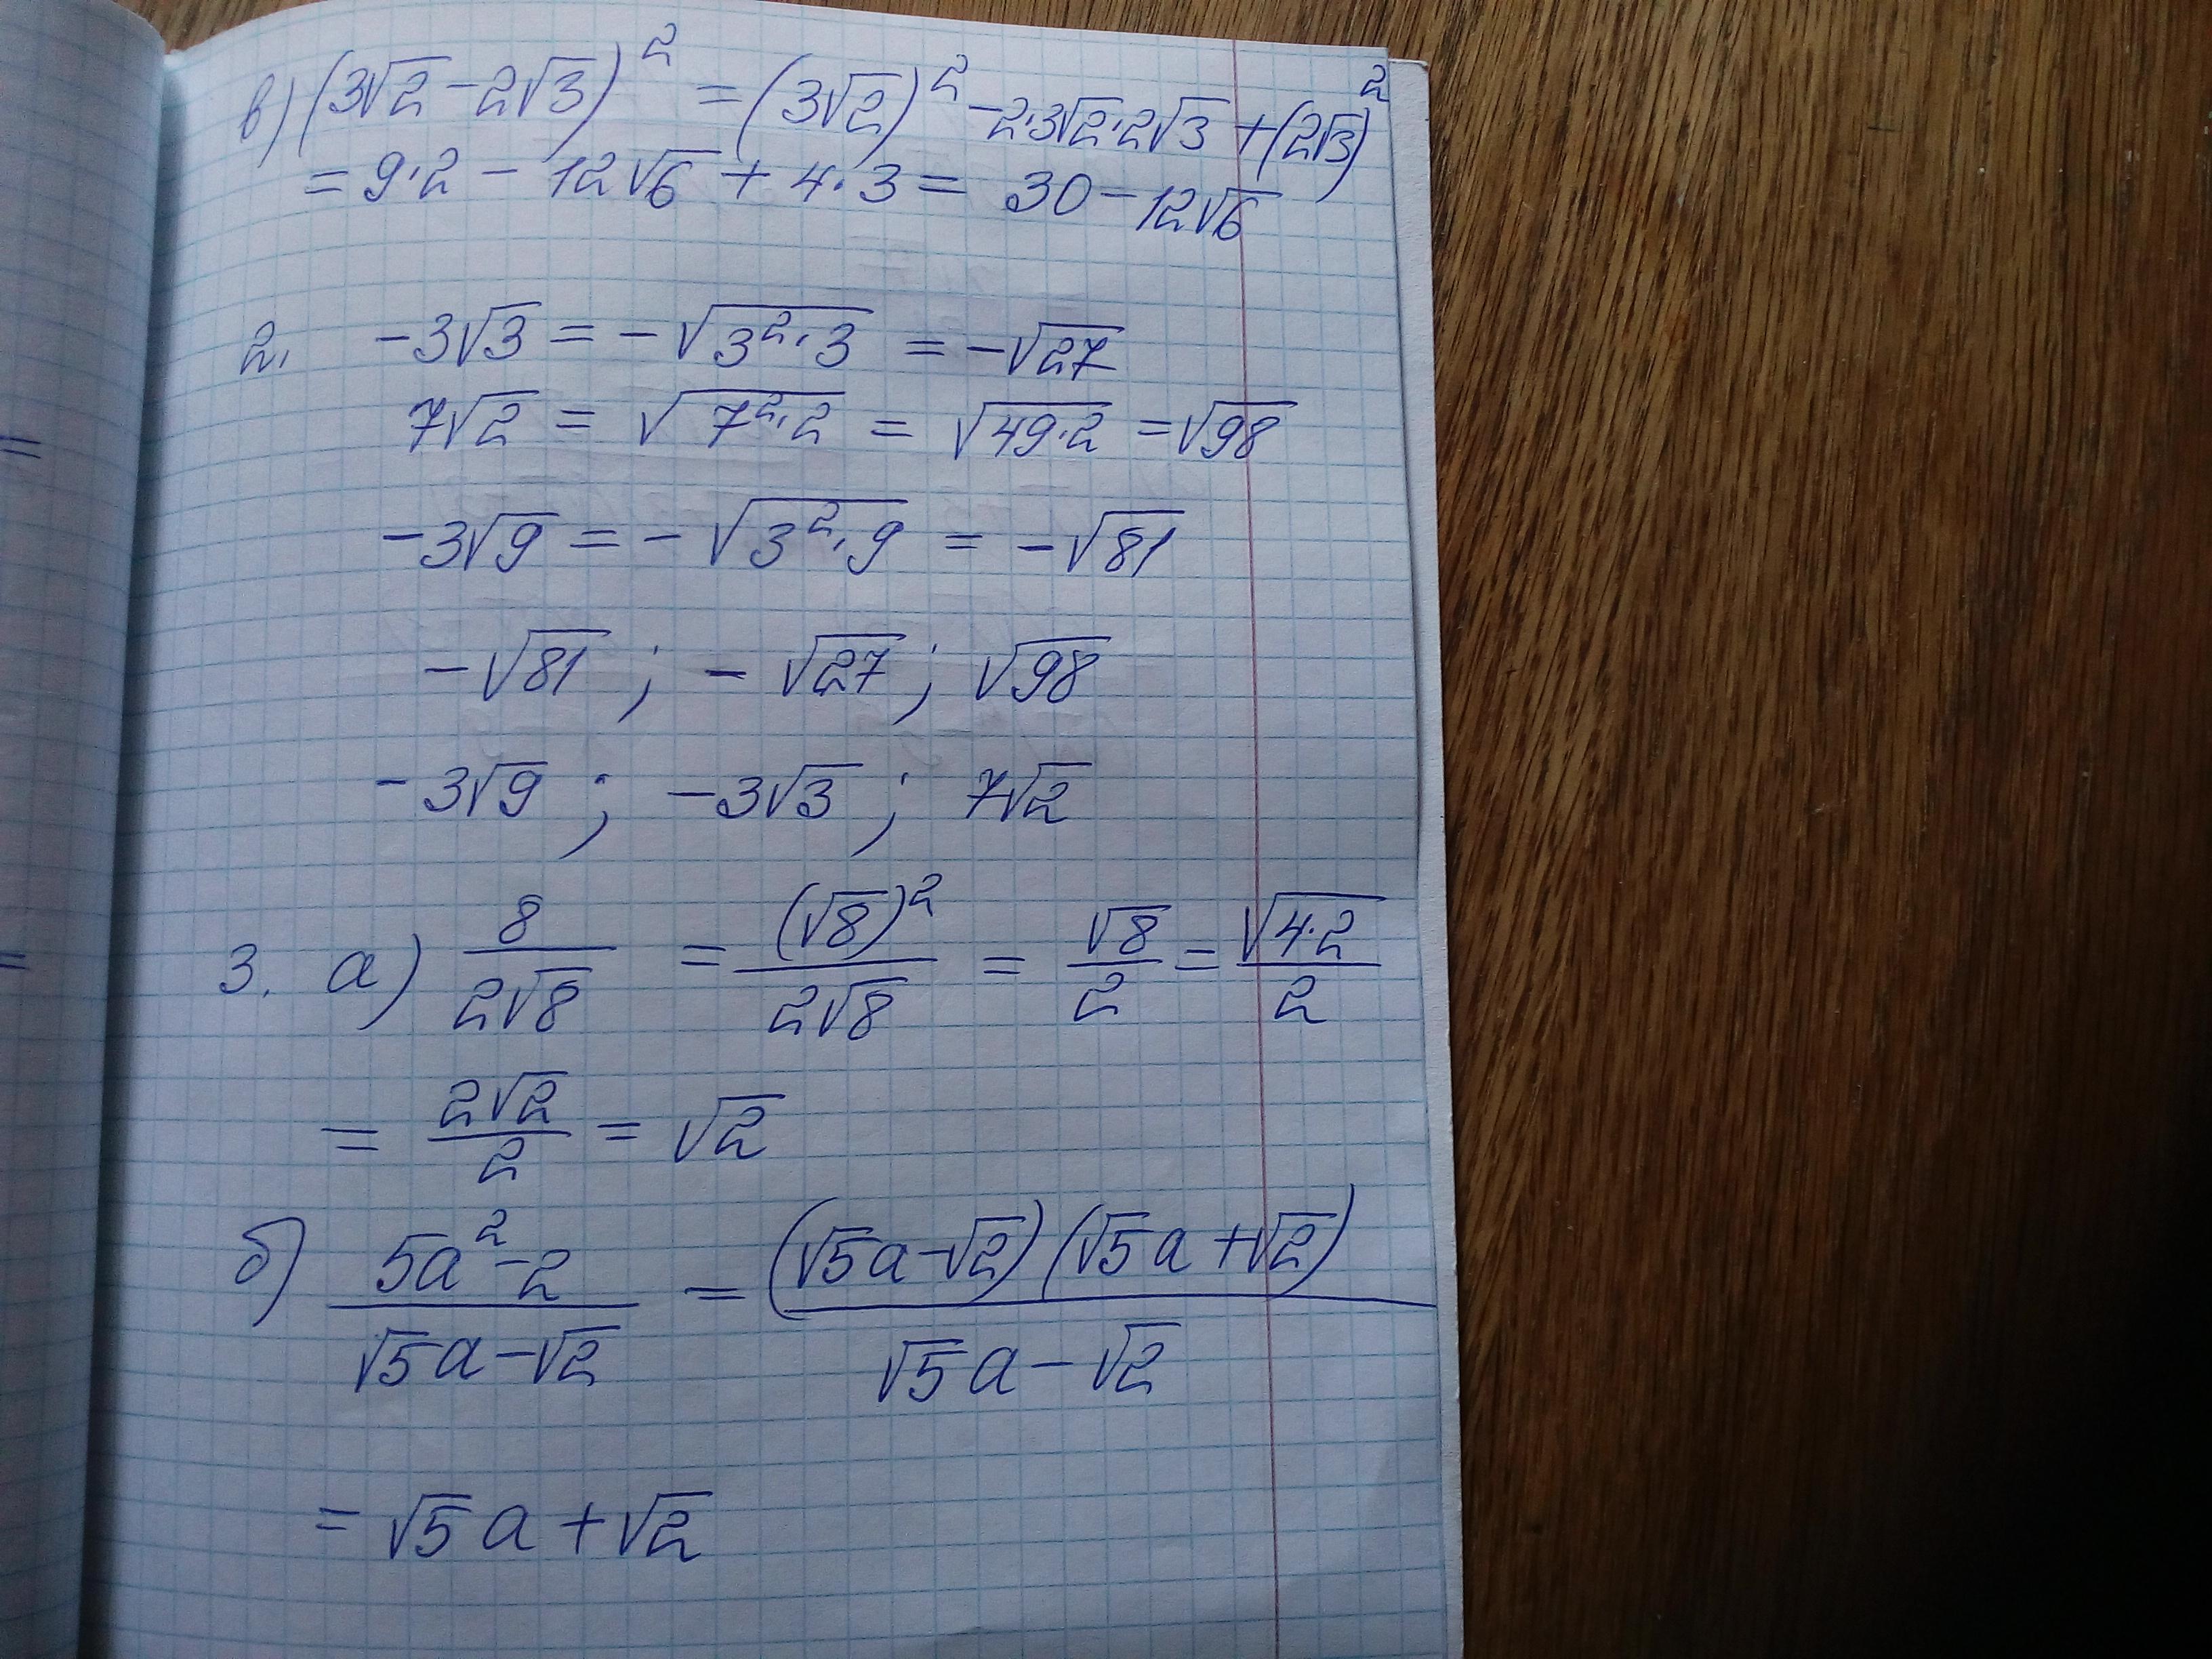 в) (3√2 - 2√3)² = (3√2)² - 2·3√2·2√3 + (2√3)²
= 9·2 - 12√6 + 4·3 = 30 - 12√6
2. -3√3 = -√(3²·3) = -√27
7√2 = √(7²·2) = √(49·2) = √98
-3√9 = -√(3²·9) = -√81
-√81 ; -√27 ; √98
-3√9 ; -3√3 ; 7√2
3. а) 8/(2√8) = (√8)²/(2√8) = √8/2 = √(4·2)/2
= 2√2/2 = √2
б) (5a² - 2)/(√5a - √2) = (√5a - √2)(√5a + √2)/(√5a - √2)
= √5a + √2
=
=